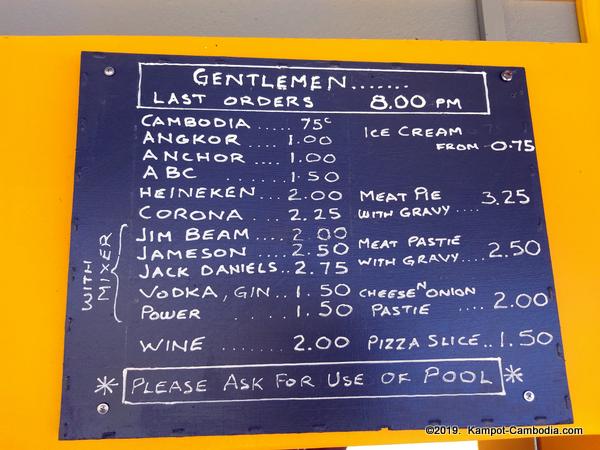 GENTLEMEN.......
LAST ORDERS 8.00 PM
CAMBODIA .... 75c
ANGKOR .... 1.00
ANCHOR .... 1.00
ABC ...... 1.50
HEINEKEN ... 2.00
CORONA .... 2.25
WITH MIXER
JIM BEAM .... 2.00
JAMESON .... 2.50
JACK DANIELS.. 2.75
VODKA, GIN.. 1.50
POWER .... 1.50
WINE ....... 2.00
ICE CREAM
FROM 0.75
MEAT PIE 3.25
WITH GRAVY ....
MEAT PASTIE
WITH GRAVY.... 2.50
CHEESE N ONION
PASTIE .... 2.00
PIZZA SLICE.. 1.50
* PLEASE ASK FOR USE OF POOL *
©2019. Kampot-Cambodia.com